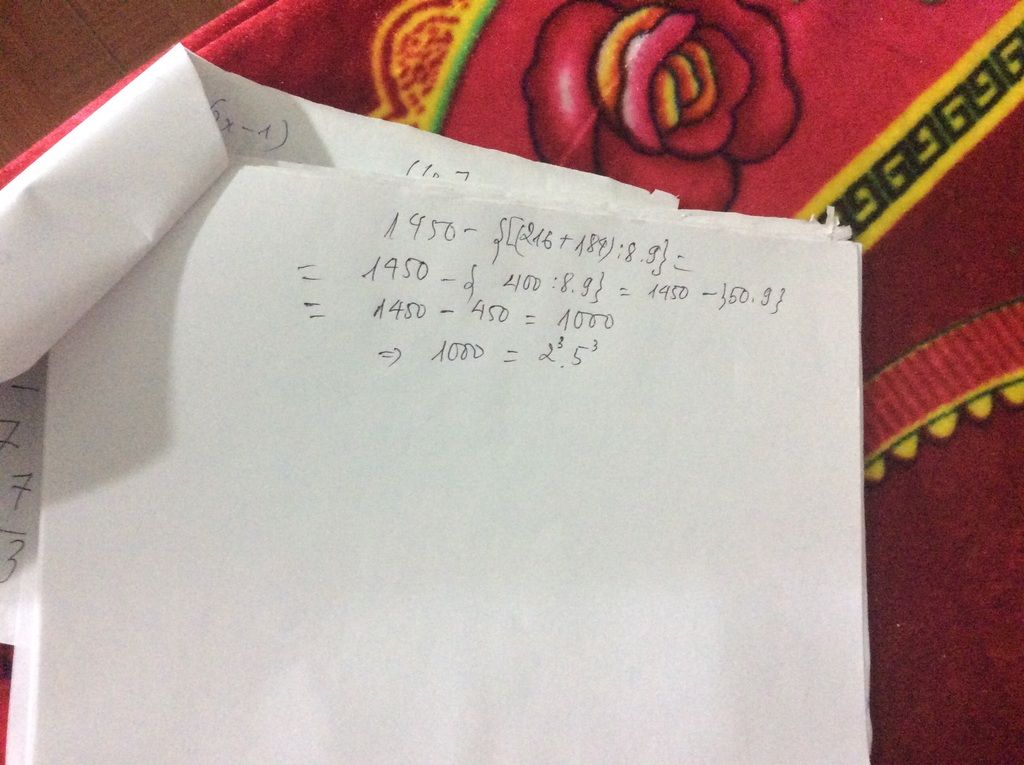 6x-1)
1450 - {[(216 + 184) : 8 . 9} =
= 1450 - { 400 : 8 . 9} = 1450 - {50 . 9}
= 1450 - 450 = 1000
=> 1000 = 2³ . 5³
7
7
3